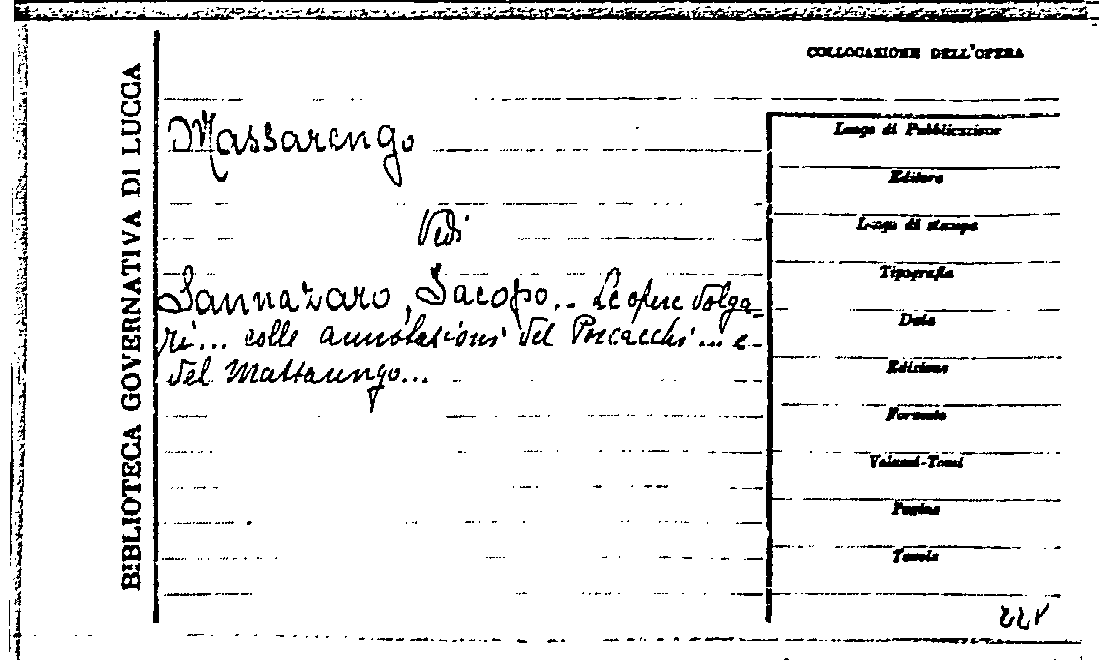 BIBLIOTECA GOVERNATIVA DI LUCCA
COLLOCAZIONE DELL'OPERA
Massarengo
Vedi
Sannazaro, Jacopo... Le opere volga-
ri... colle annotazioni del Porcacchi... e
del Massarengo...
Luogo di Pubblicazione
Editore
Luogo di stampa
Tipografia
Data
Edizione
Formato
Volumi-Tomi
Pagine
Tavole